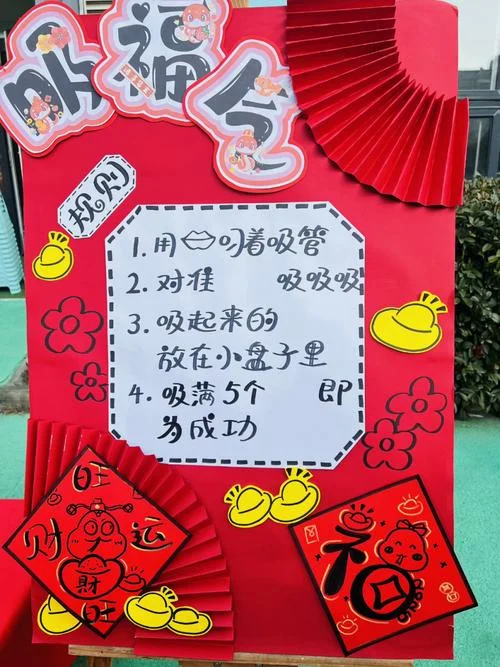 吸福令
规则
1. 用 叼着吸管
2. 对准 吸吸吸
3. 吸起来的
放在小盘子里
4. 吸满5个 即
为成功
旺
财 运
財
旺
福